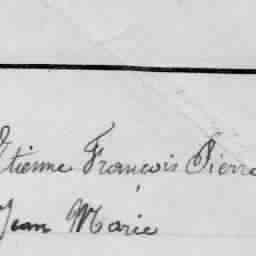 Etienne François Pierre
Jean Marie